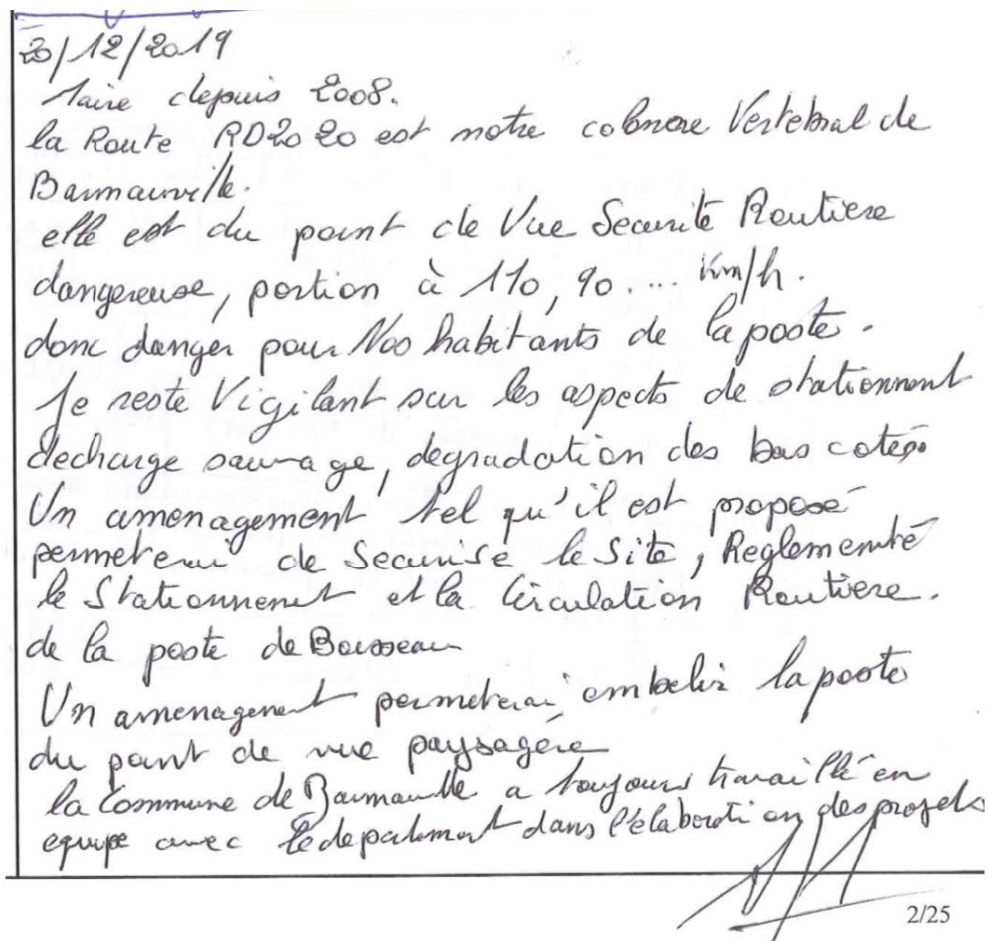 20/12/2019
Maire depuis 2008.
la Route RD2020 est notre colonne Vertebral de
Barmainville.
elle est du point de Vue Securité Routiere
dangereuse, portion à 110, 90.... Km/h.
donc danger pour Nos habitants de la poste.
Je reste Vigilant sur les aspects de stationnent
decharge sauvage, degradation des bas cotés
Un amenagement tel qu'il est proposé
permeterai de Securisé le Site, Reglementé
le Stationnement et la Circulation Routiere.
de la poste de Boisseau
Un amenagement permeterai embelir la poste
du point de vue paysagère
la Commune de Barmainville a toujours travaillé en
equipe avec le departement dans l'élaboration des projets
2/25